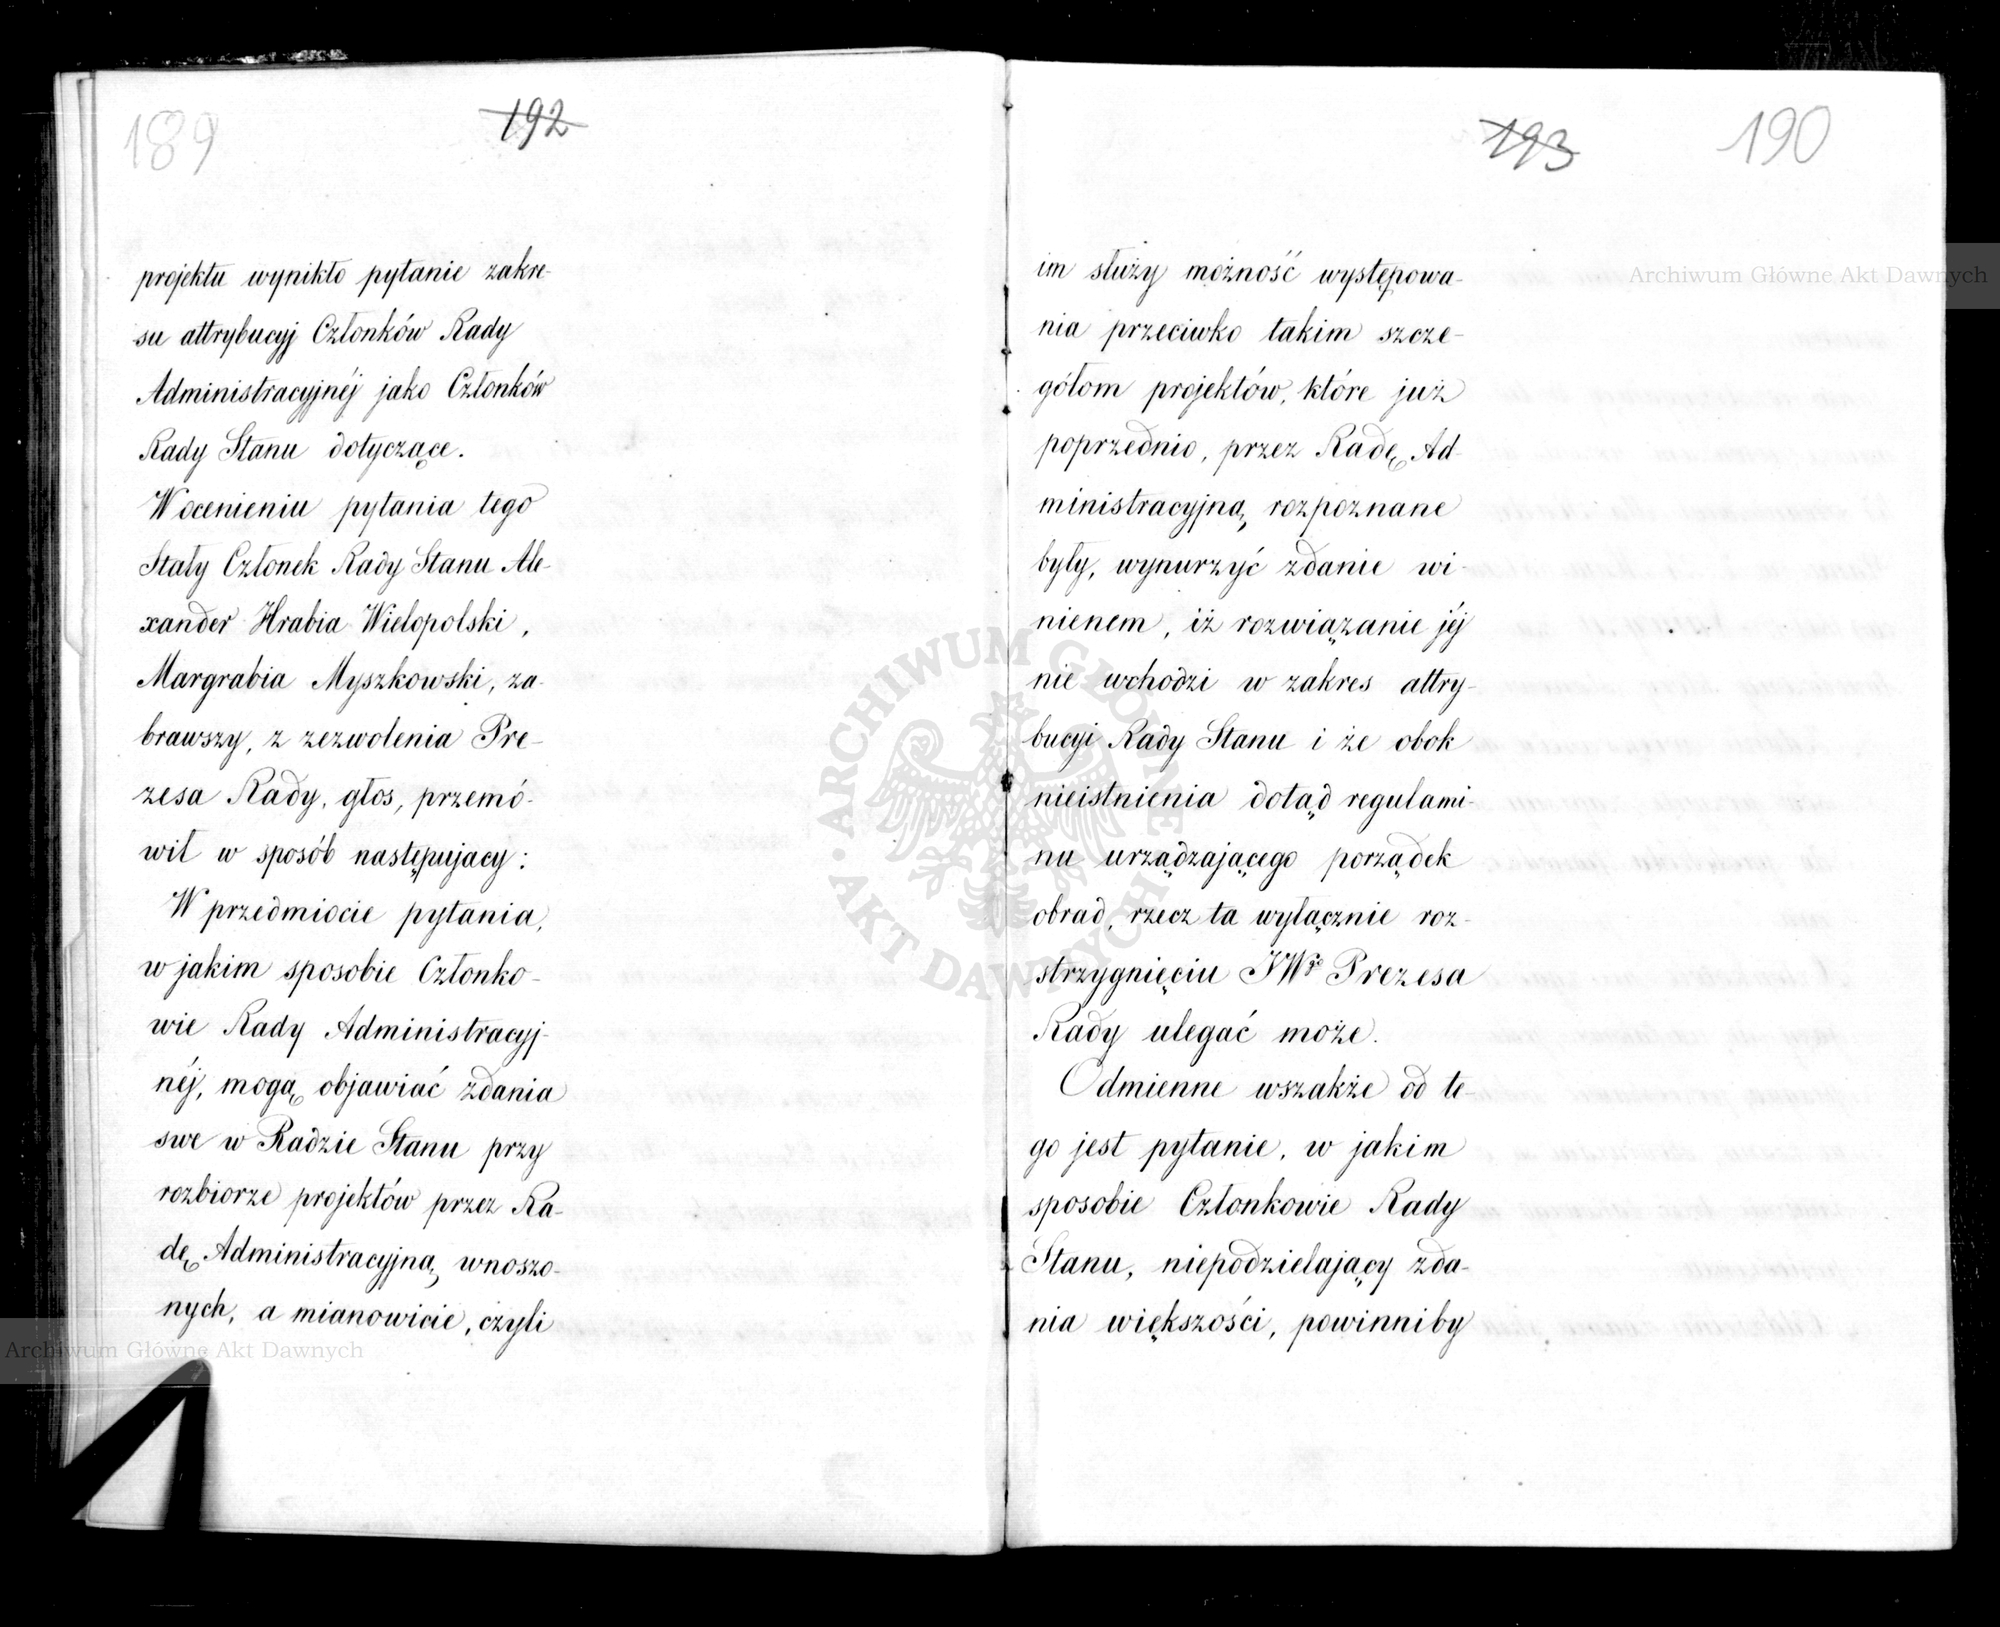 189
192
projektu wynikło pytanie zakre-
su attrybucyj Członków Rady
Administracyjnéj jako Członków
Rady Stanu dotyczące.
W ocenieniu pytania tego
Stały Członek Rady Stanu Ale-
xander Hrabia Wielopolski,
Margrabia Myszkowski, za-
brawszy, z zezwolenia Pre-
zesa Rady, głos, przemó-
wił w sposób następujacy:
W przedmiocie pytania,
w jakim sposobie Członko-
wie Rady Administracyj-
néj, mogą objawiać zdania
swe w Radzie Stanu przy
rozbiorze projektów przez Ra-
dę Administracyjną wnoszo-
nych, a mianowicie, czyli
193
190
im służy możność występowa-
nia przeciwko takim szcze-
gółom projektów, które już
poprzednio, przez Radę Ad-
ministracyjną rozpoznane
były, wynurzyć zdanie wi-
nienem, iż rozwiązanie jéj
nie wchodzi w zakres attry-
bucyi Rady Stanu i że obok
nieistnienia dotąd regulami-
nu urządzającego porządek
obrad, rzecz ta wyłącznie roz-
strzygnięciu JWgo Prezesa
Rady ulegać może.
Odmienne wszakże od te-
go jest pytanie, w jakim
sposobie Członkowie Rady
Stanu, niepodzielający zda-
nia większości, powinniby
Archiwum Główne Akt Dawnych
Archiwum Główne Akt Dawnych
• ARCHIWUM GŁÓWNE • AKT DAWNYCH